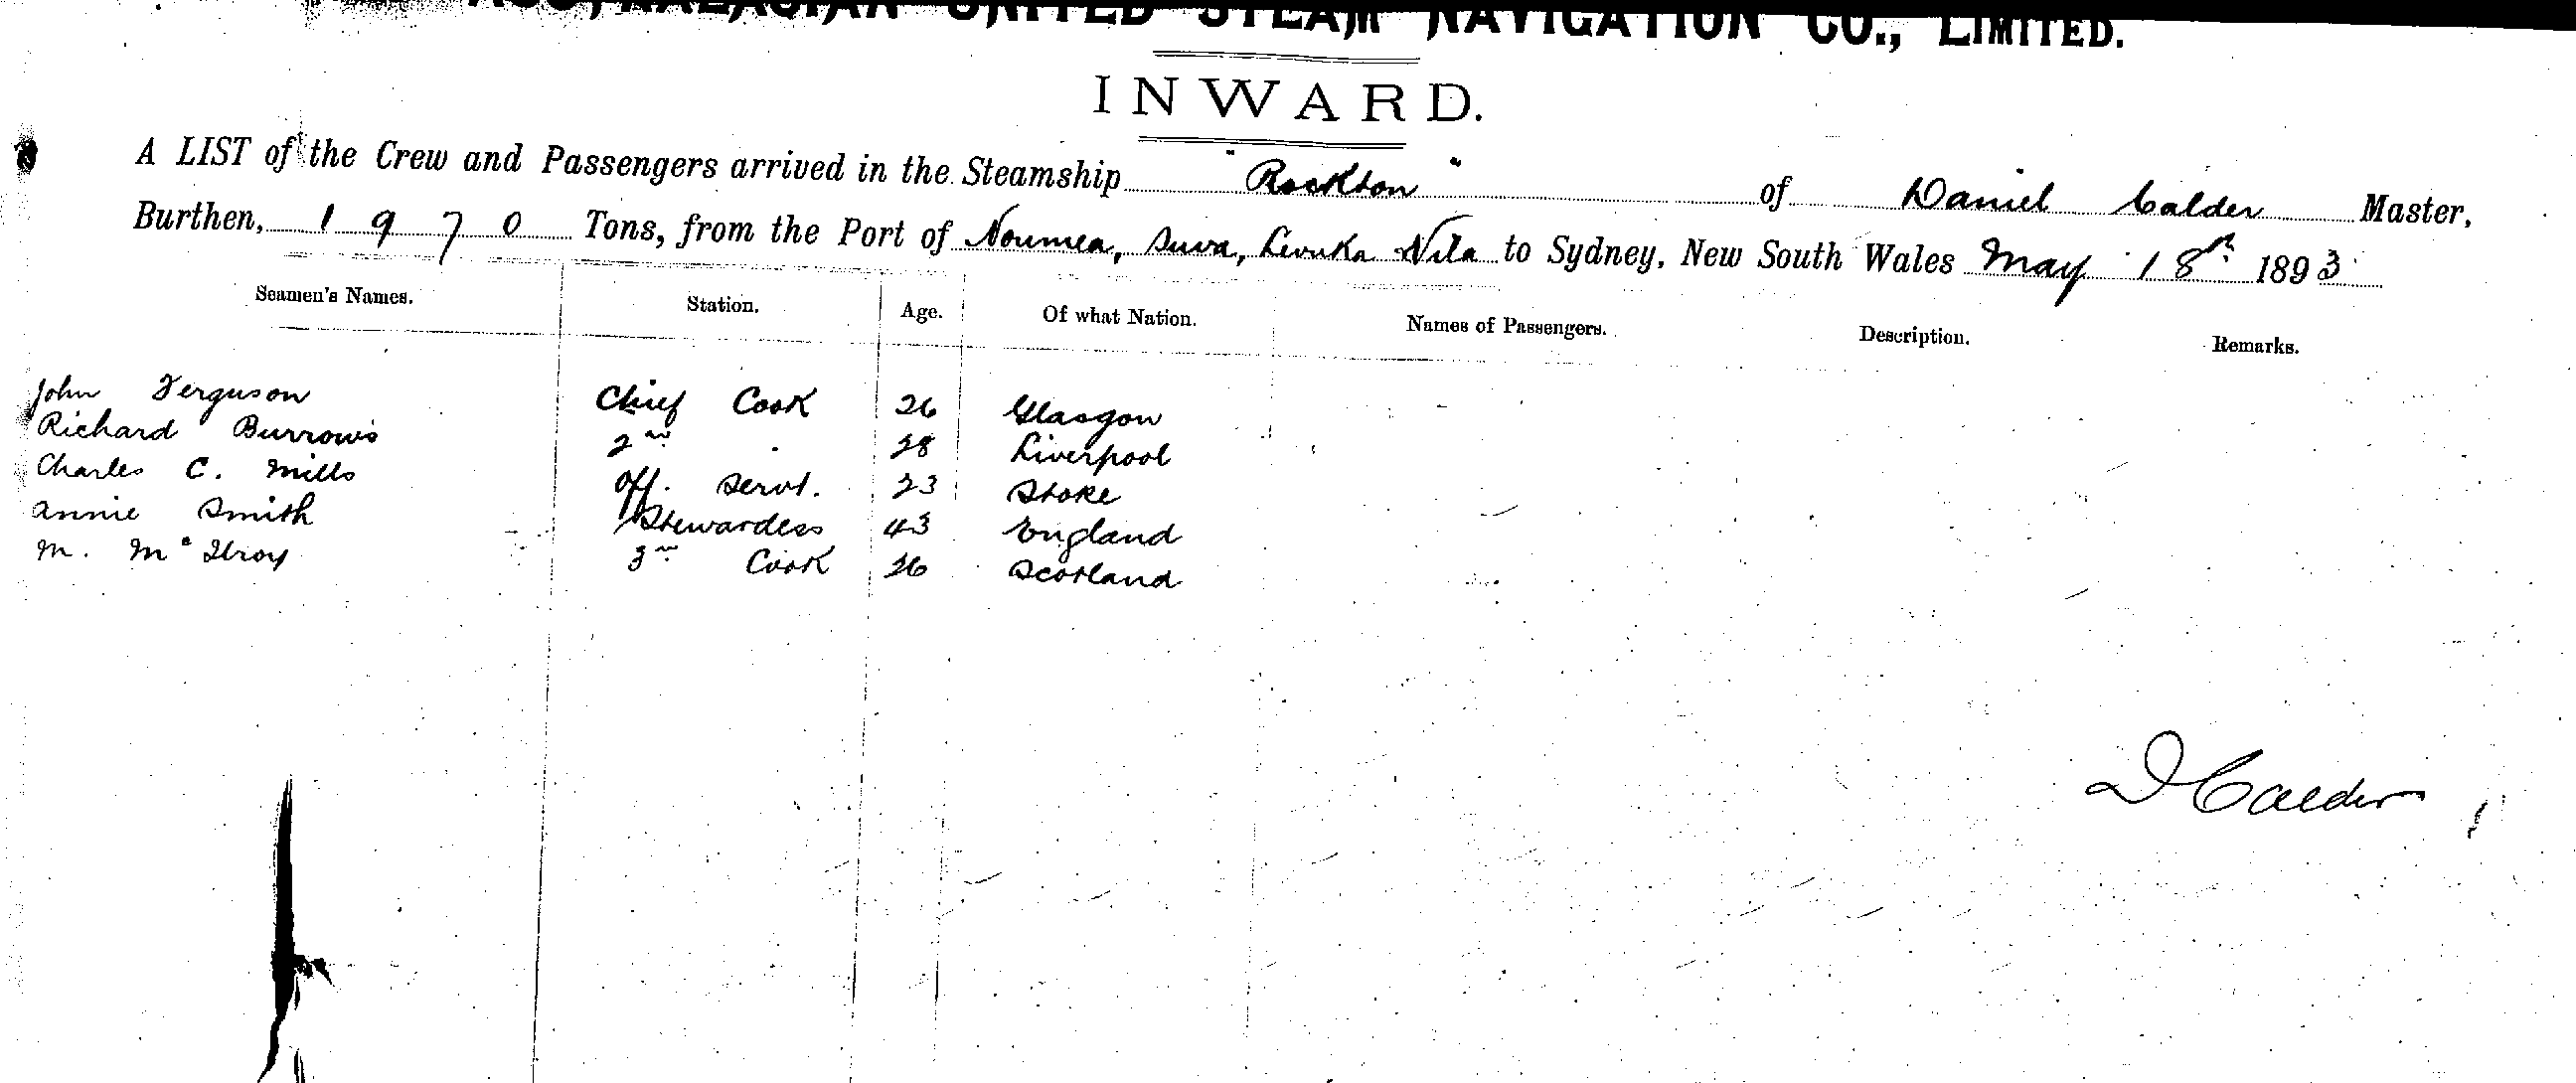 AUSTRALASIAN UNITED STEAM NAVIGATION CO., LIMITED.
INWARD.
A LIST of the Crew and Passengers arrived in the Steamship "Rockton" of Daniel Calder Master,
Burthen, 1970 Tons, from the Port of Noumea, Suva, Levuka Vila to Sydney, New South Wales May 18th 1893
Seamen's Names. Station. Age. Of what Nation. Names of Passengers. Description. Remarks.
John Ferguson Chief Cook 26 Glasgow
Richard Burrows 2nd " 28 Liverpool
Charles C. Mills Off. Servt. 23 Stoke
Annie Smith Stewardess 43 England
M. McIlroy 3rd Cook 26 Scotland
D Calder